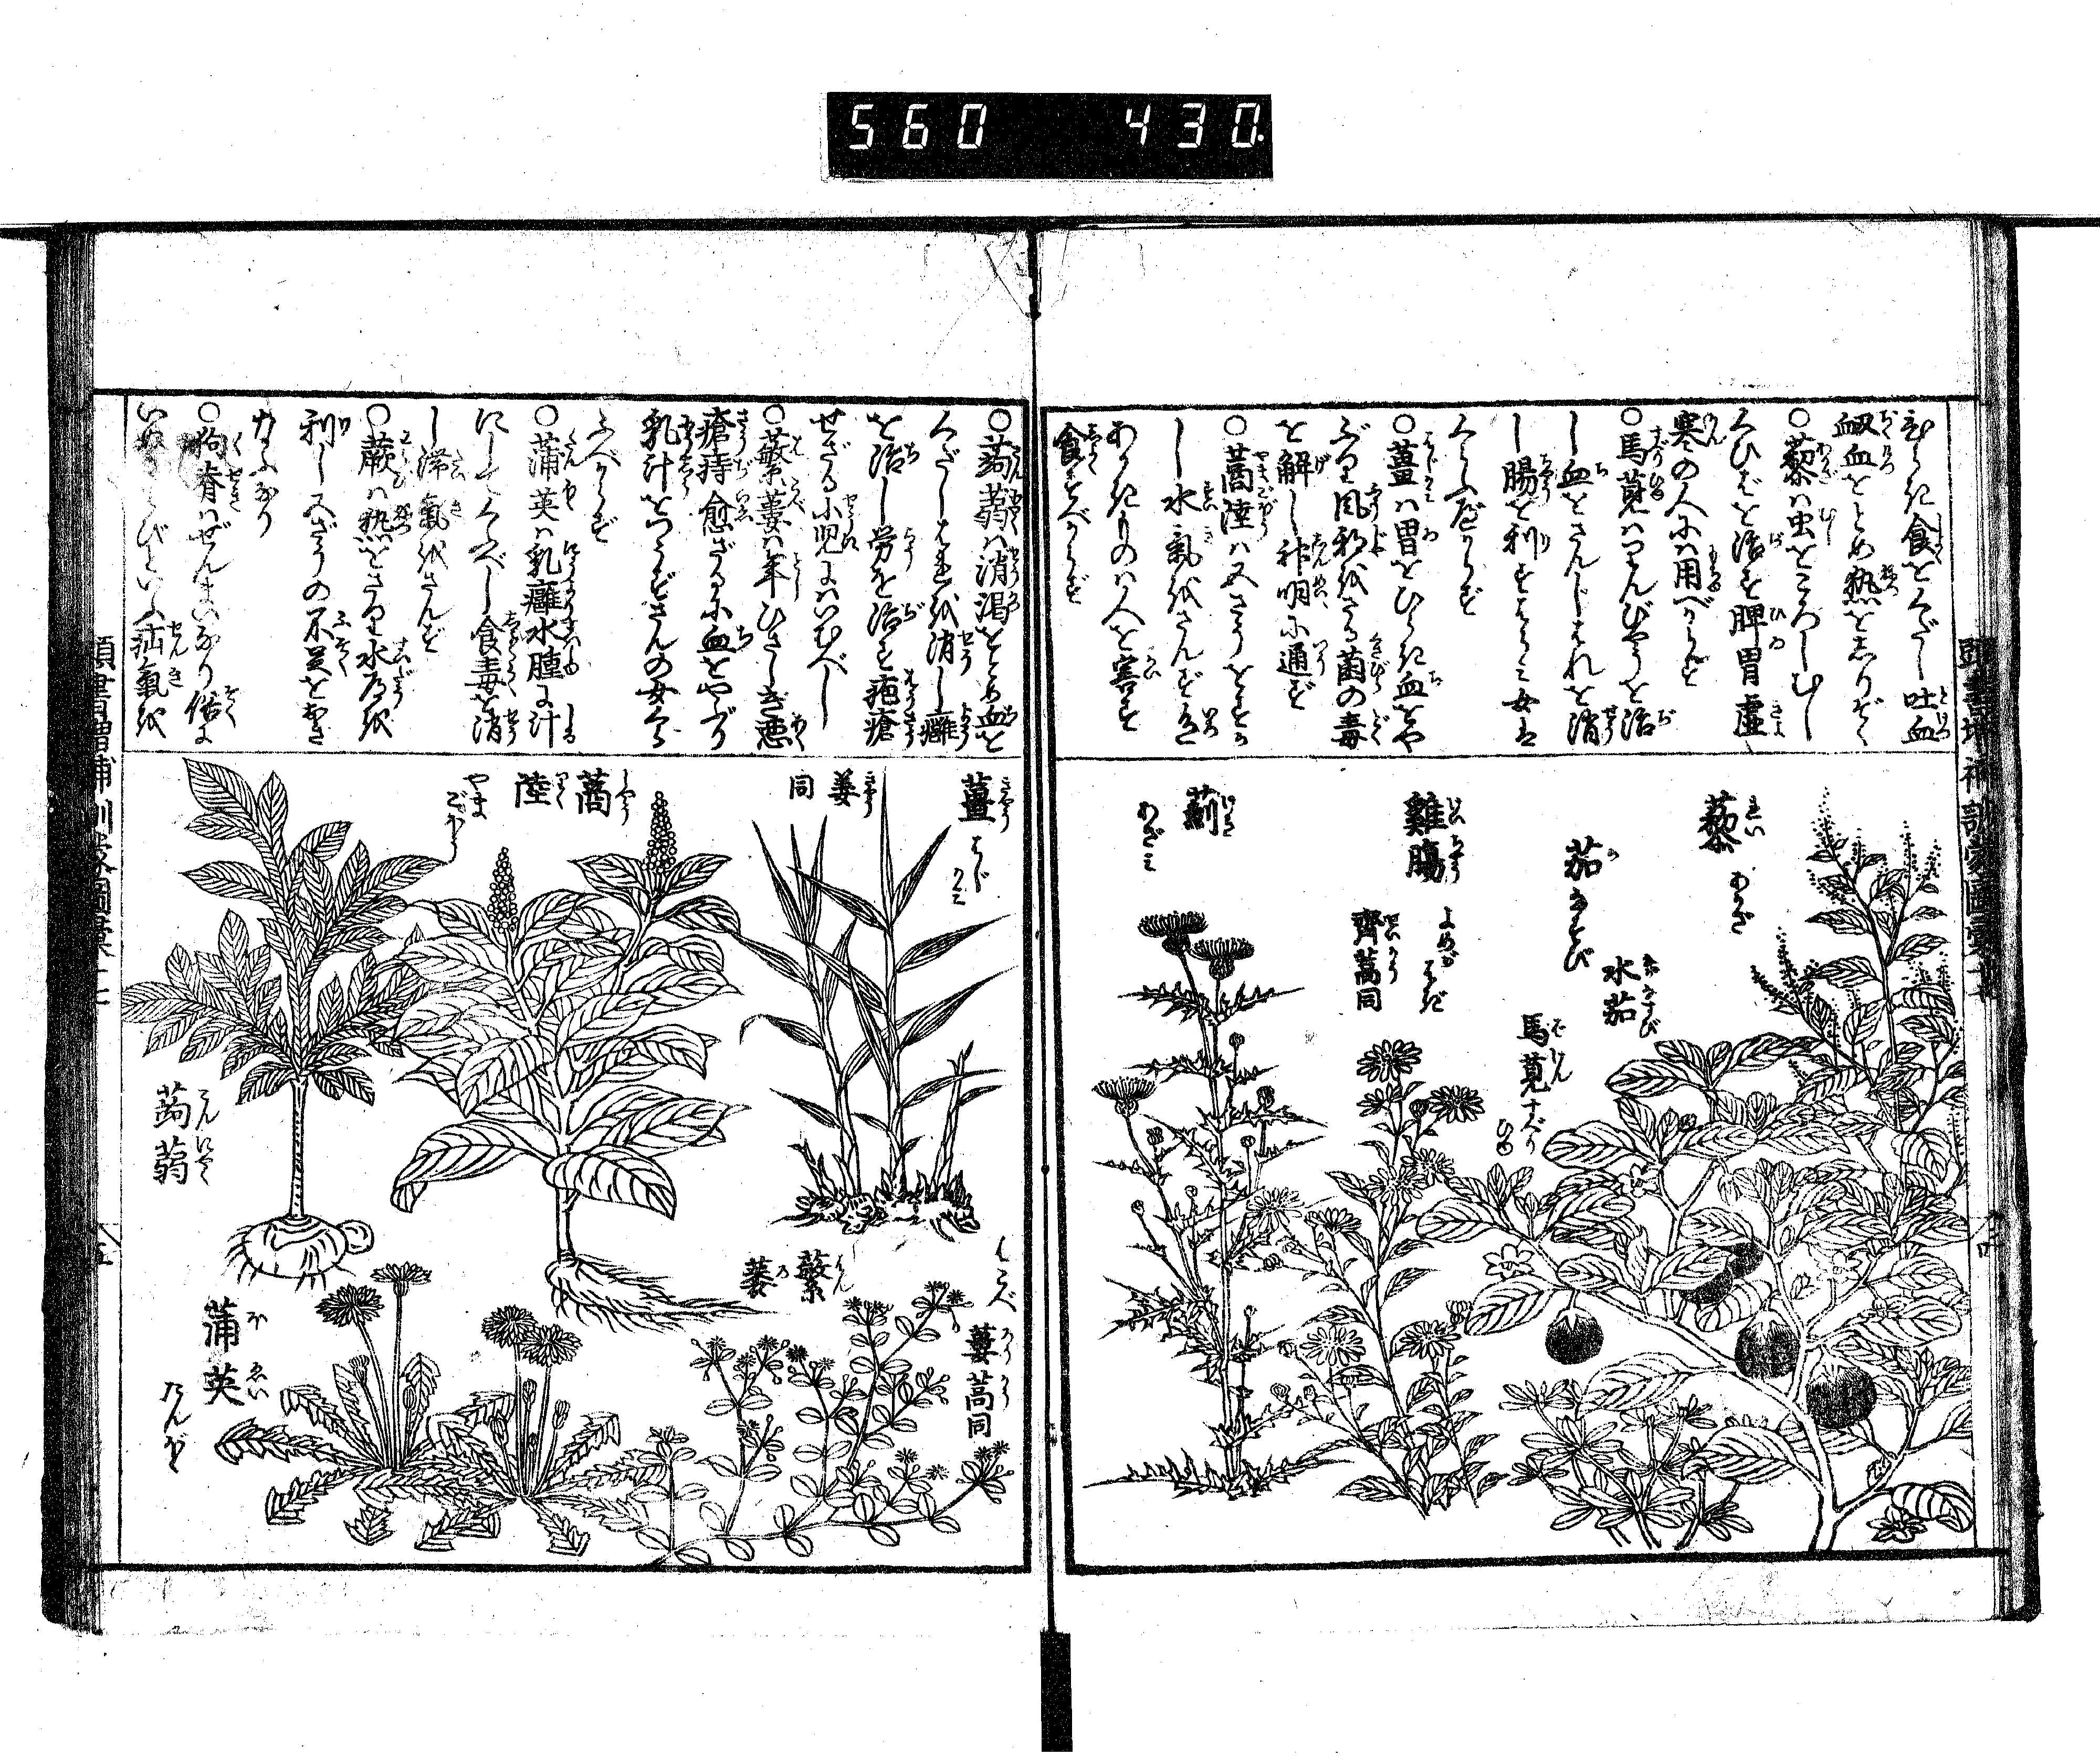 560 430.
ひらき食をくだし吐血
衂血をとめ熱をしりぞく
○藜は虫をころしむし
くひばを治す脾胃虚
寒の人には用べからず
○馬莧はりんびやうを治
し血をさんじはれを消
し腸を利す
くらふべからず
○薑は胃をひらき血をや
ぶり風邪をさる菌の毒
を解し神明に通ず
○蔏陸は
し水氣をさんず
あかきものは人を害す
食すべからず
藜 れい あかざ
茄 か なすび
水茄
馬莧 すべりひゆ
雞腸 けいちやう よめがはぎ
齊蒿同
薊 けい あざみ
○蒟蒻は消渇をとめ血を
くだしはれを消し癰
を治し労を治す疱瘡
せざる小児にはいむべし
○蘩蔞は年ひさしき悪
瘡痔愈ざるに血をやぶり
乳汁をつうずさんの女くら
ふべからず
○蒲英は乳癰水腫に汁
にしてくふべし食毒を消
し滞氣をさんず
○蕨は熱をさり水道を
利し五ざうの不足をおぎ
なふなり
○狗脊はぜんまいなり俗に
いぬわらびといふ疝氣を
薑 きやう はじかみ
姜 きやう 同
蔏陸 しやうりく やまごぼう
蒟蒻 こんにやく
蘩蔞 はんろ はこべ
蔞蒿同
蒲英 ほゑい たんぽゝ
頭書増補訓蒙圖彙